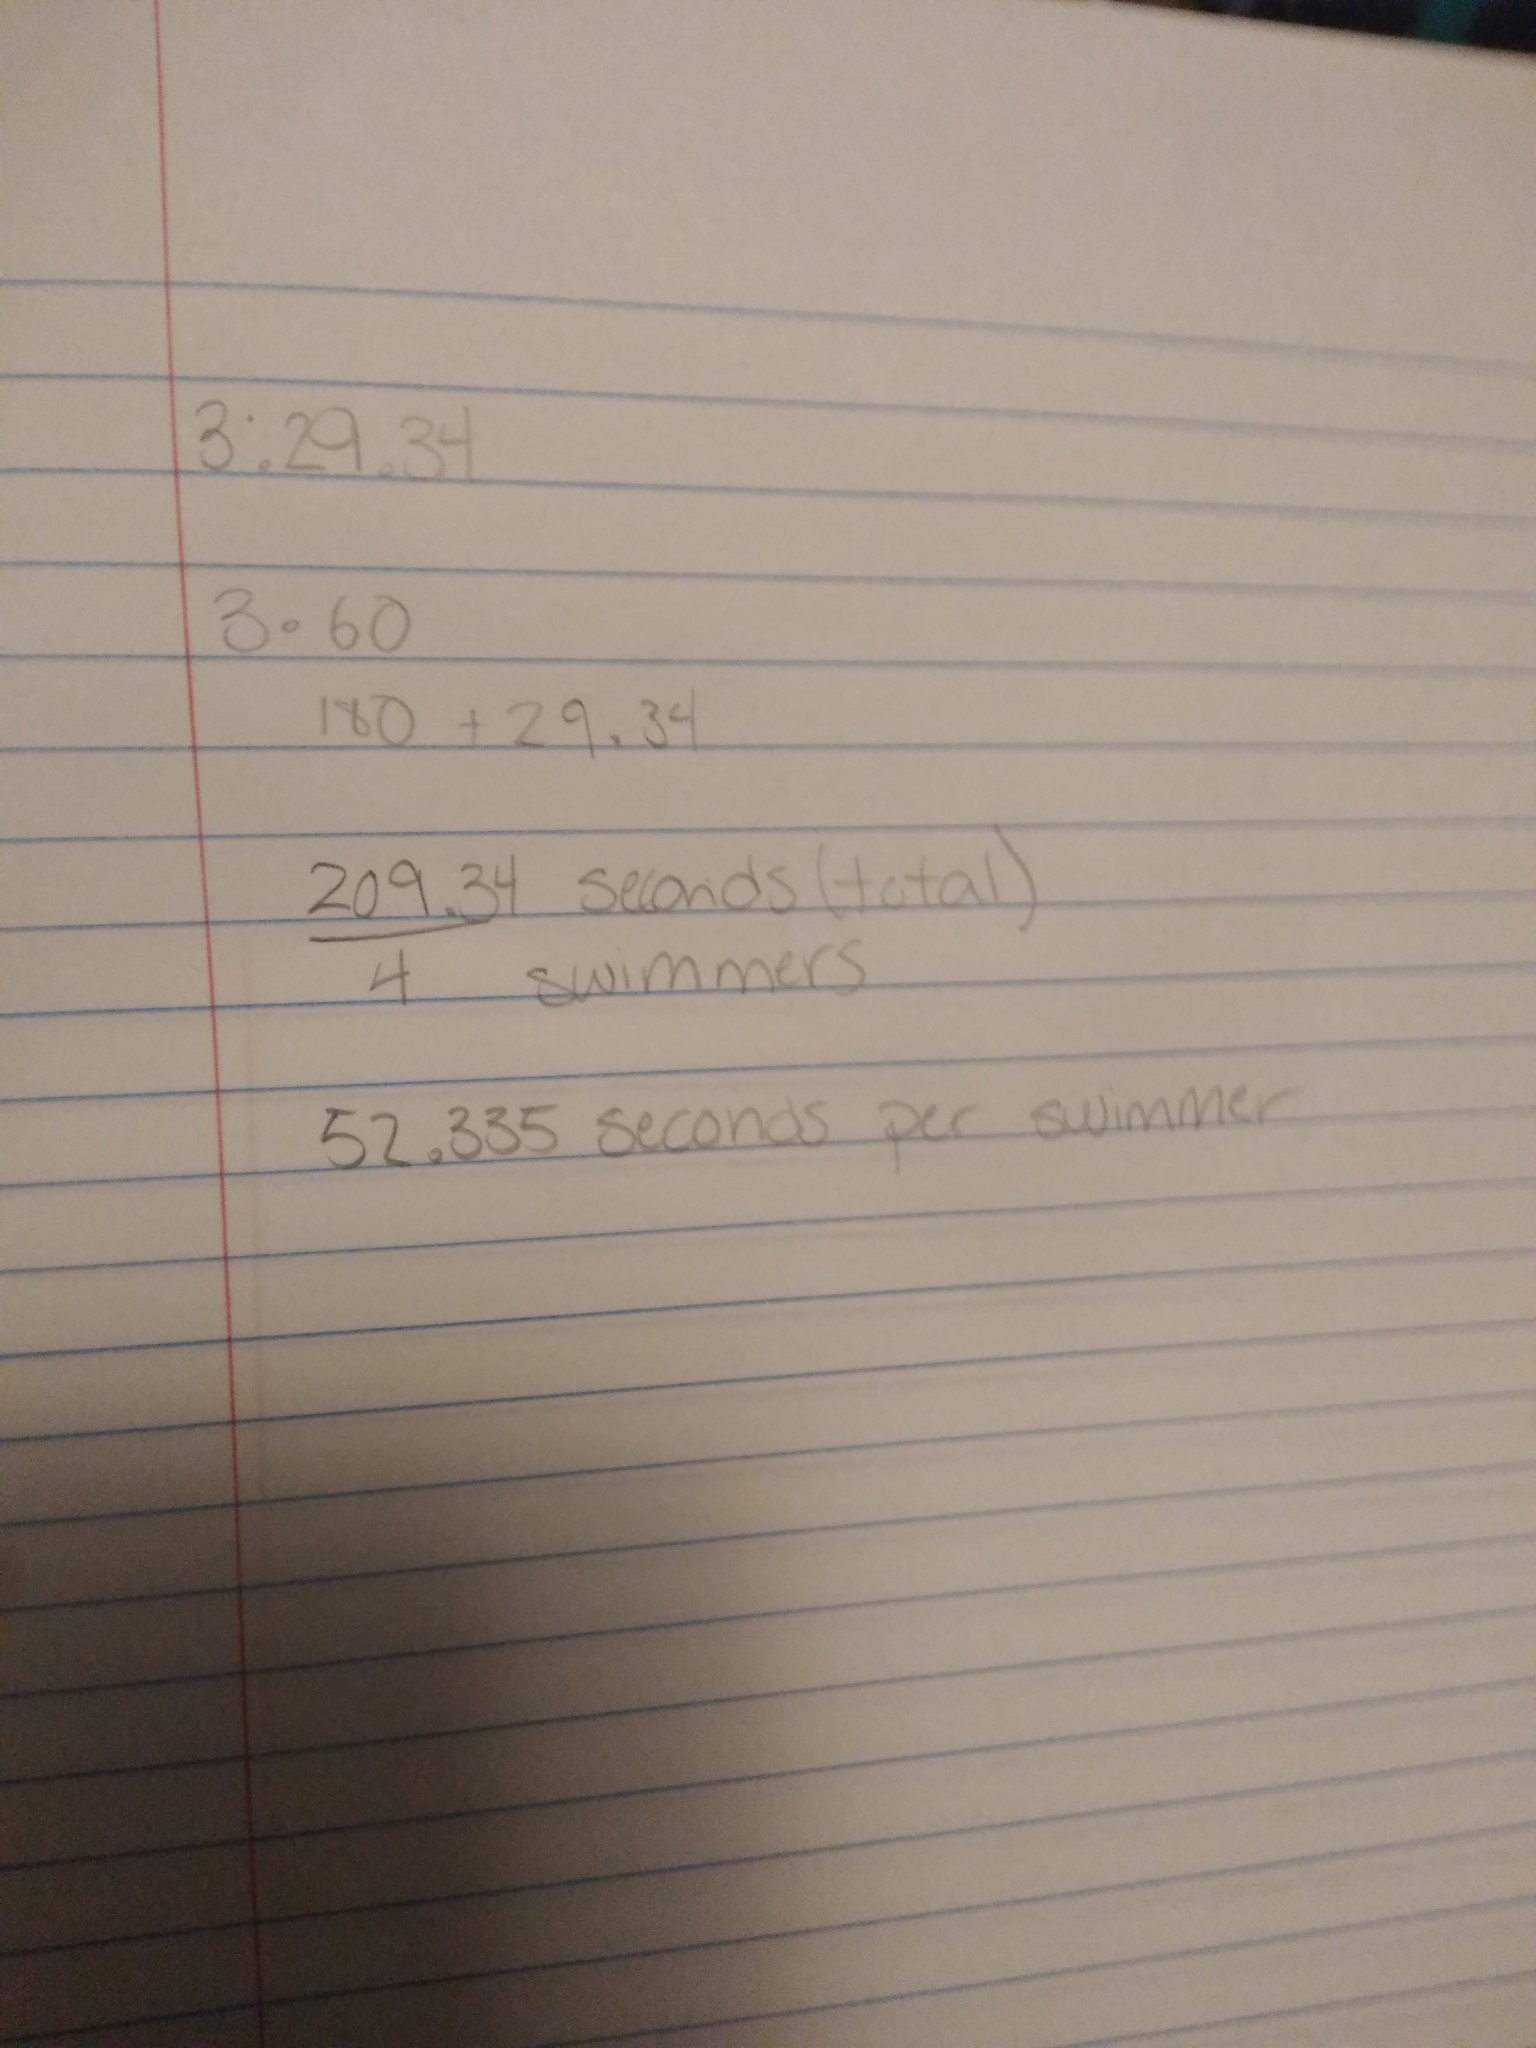 3:29.34
3•60
180 + 29.34
209.34 seconds (total)
4 swimmers
52.335 seconds per swimmer